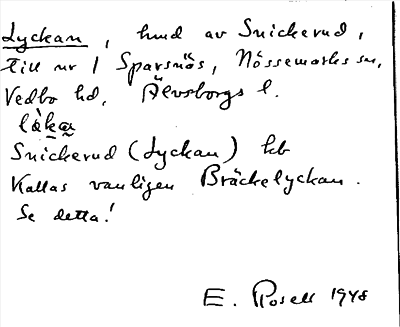 Lyckan, hmd av Snickerud,
till nr 1 Sparsnäs, Nössemarks sn,
Vedbo hd, Älvsborgs l.
Snickerud (Lyckan) hb
Kallas vanligen Bräckelyckan.
Se detta!
E. Rosell 1948